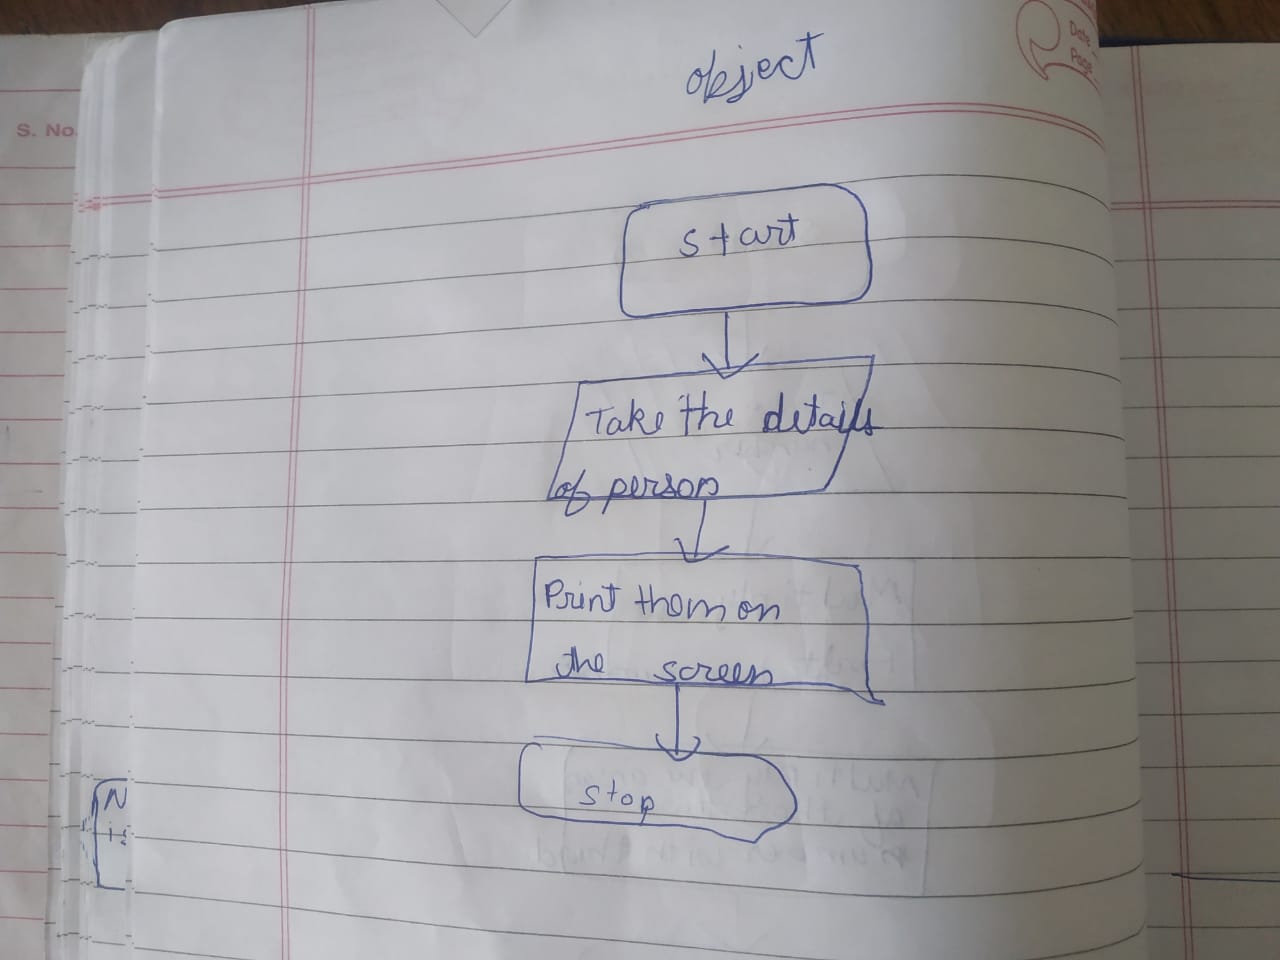 object
S. No.
Date
Page
start
Take the details
of person
Print them on
the screen
stop
N
is